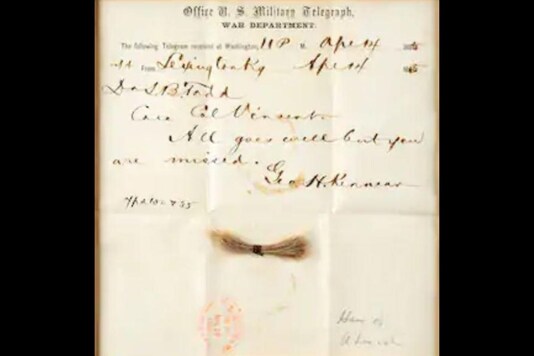 Office U. S. Military Telegraph,
WAR DEPARTMENT.
The following Telegram received at Washington, 11 P M. Apl 14 1865
From Lexington Ky Apl 14 1865
Dr L B Todd
Care Col Vincent
All goes well but you
are missed.
Geo H. Kinnear
Hair of
A Lincoln